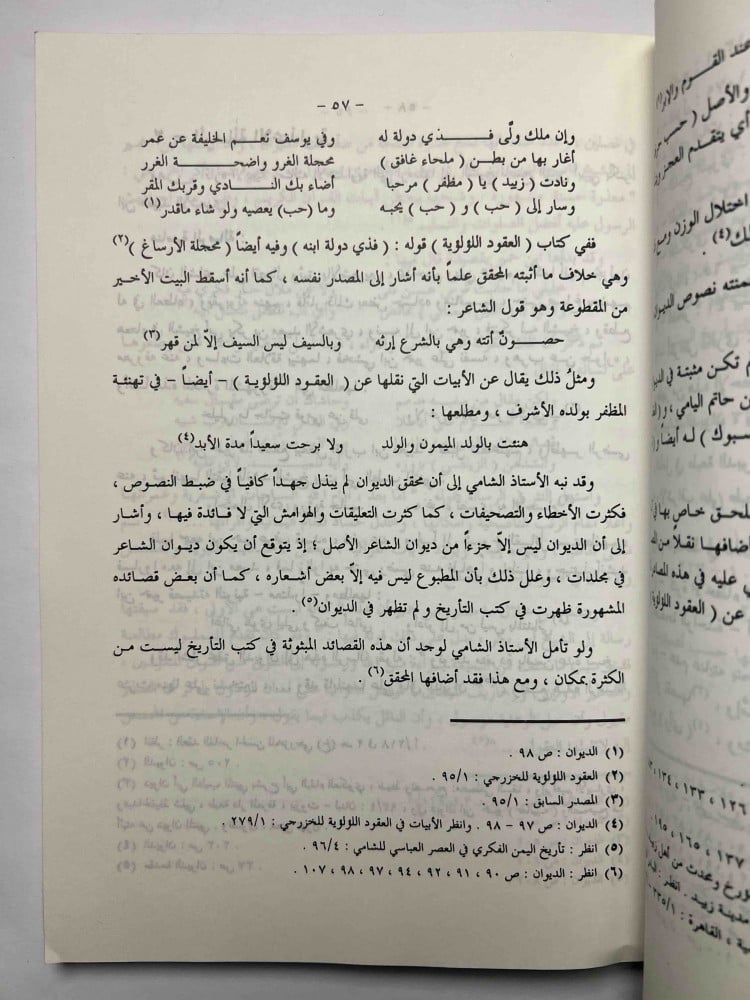 - ٥٧ -
وإن ملك ولّى فــــذي دولة له وفي يوسف نعم الخليفة عن عمر
أغار بها من بطـن ( ملحاء غافق ) محجلة الغرو واضحــــة الغرر
ونادت ( زبيد ) يا ( مظفر ) مرحبا أضاء بك النـــادي وقربك المقر
وسار إلى ( حب ) و ( حب ) يحبه وما (حب) يعصيه ولو شاء ماقدر(١)
ففي كتاب ( العقود اللؤلؤية ) قوله : ( فذي دولة ابنه ) وفيه أيضاً ( محجلة الأرساغ )(٢)
وهي خلاف ما أثبته المحقق علماً بأنه أشار إلى المصدر نفسه ، كما أنه أسقط البيت الأخير
من المقطوعة وهو قول الشاعر :
حصـــونٌ أتته وهي بالشرع إرثه وبالسيف ليس السيف إلاّ لمن قهر(٣)
ومثلُ ذلك يقال عن الأبيات التي نقلها عن ( العقود اللؤلؤية ) – أيضـاً – في تهنئة
المظفر بولده الأشرف ، ومطلعها :
هنئت بالولد الميمون والولد ولا برحت سعيداً مدة الأبد(٤)
وقد نبه الأستاذ الشامي إلى أن محقق الديوان لم يبذل جهـداً كافيـاً في ضبـط النصوص ،
فكثرت الأخطاء والتصحيفات ، كما كثرت التعليقات والهوامش التي لا فـائدة فيهـا ، وأشـار
إلى أن الديوان ليس إلاّ جزءاً من ديوان الشاعر الأصل ؛ إذ يتوقع أن يكون ديـوان الشـاعر
في مجلدات ، وعلل ذلك بأن المطبوع ليس فيه إلاّ بعض أشعاره ، كمـا أن بعـض قصـائده
المشهورة ظهرت في كتب التأريخ و لم تظهر في الديوان(٥) .
ولو تأمل الأستاذ الشامي لوجد أن هذه القصائد المبثوثة في كتب التأريخ ليسـت مـن
الكثرة بمكان ، ومع هذا فقد أضافها المحقق(٦) .
(١) الديوان : ص ٩٨ .
(٢) العقود اللؤلؤية للخزرجي : ٩٥/١ .
(٣) المصدر السابق : ٩٥/١ .
(٤) الديوان : ص ٩٧ – ٩٨ . وانظر الأبيات في العقود اللؤلؤية للخزرجي : ٢٧٩/١ .
(٥) انظر : تأريخ اليمن الفكري في العصر العباسي للشامي : ٩٦/٤ .
(٦) انظر : الديوان : ص ٩٠ ، ٩١ ، ٩٢ ، ٩٤ ، ٩٧ ، ٩٨ ، ١٠٧ .
عند القـــوم والإبرا)
والأصل ( حسب
أي يتقـدم العجـز
اختلال الوزن
لك(٤) .
منته نصوص الديـوان
م تكـن مثبتة في
ن حاتم اليامي ، و(
سبوك ) لـه أيضاً
لحـق خاص بها
أضافهـا نقلاً من
ي عليه في هذه
عن ( العقود اللؤلؤية
١٢٦ ، ١٣٣ ، ١٣٤
١٣٧ ، ١٦٥ ، ١٩٥
مدينة زبيد . انظر :
ية ، القاهرة : ٣٣٥/١